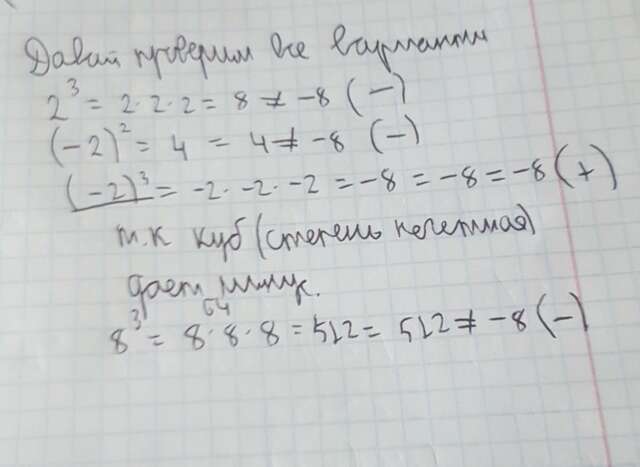 Давай проверим все варианты
2³ = 2·2·2 = 8 ≠ -8 (-)
(-2)² = 4 = 4 ≠ -8 (-)
(-2)³ = -2·-2·-2 = -8 = -8 = -8 (+)
т.к куб (степень нечетная)
дает минус.
64
8³ = 8·8·8 = 512 = 512 ≠ -8 (-)